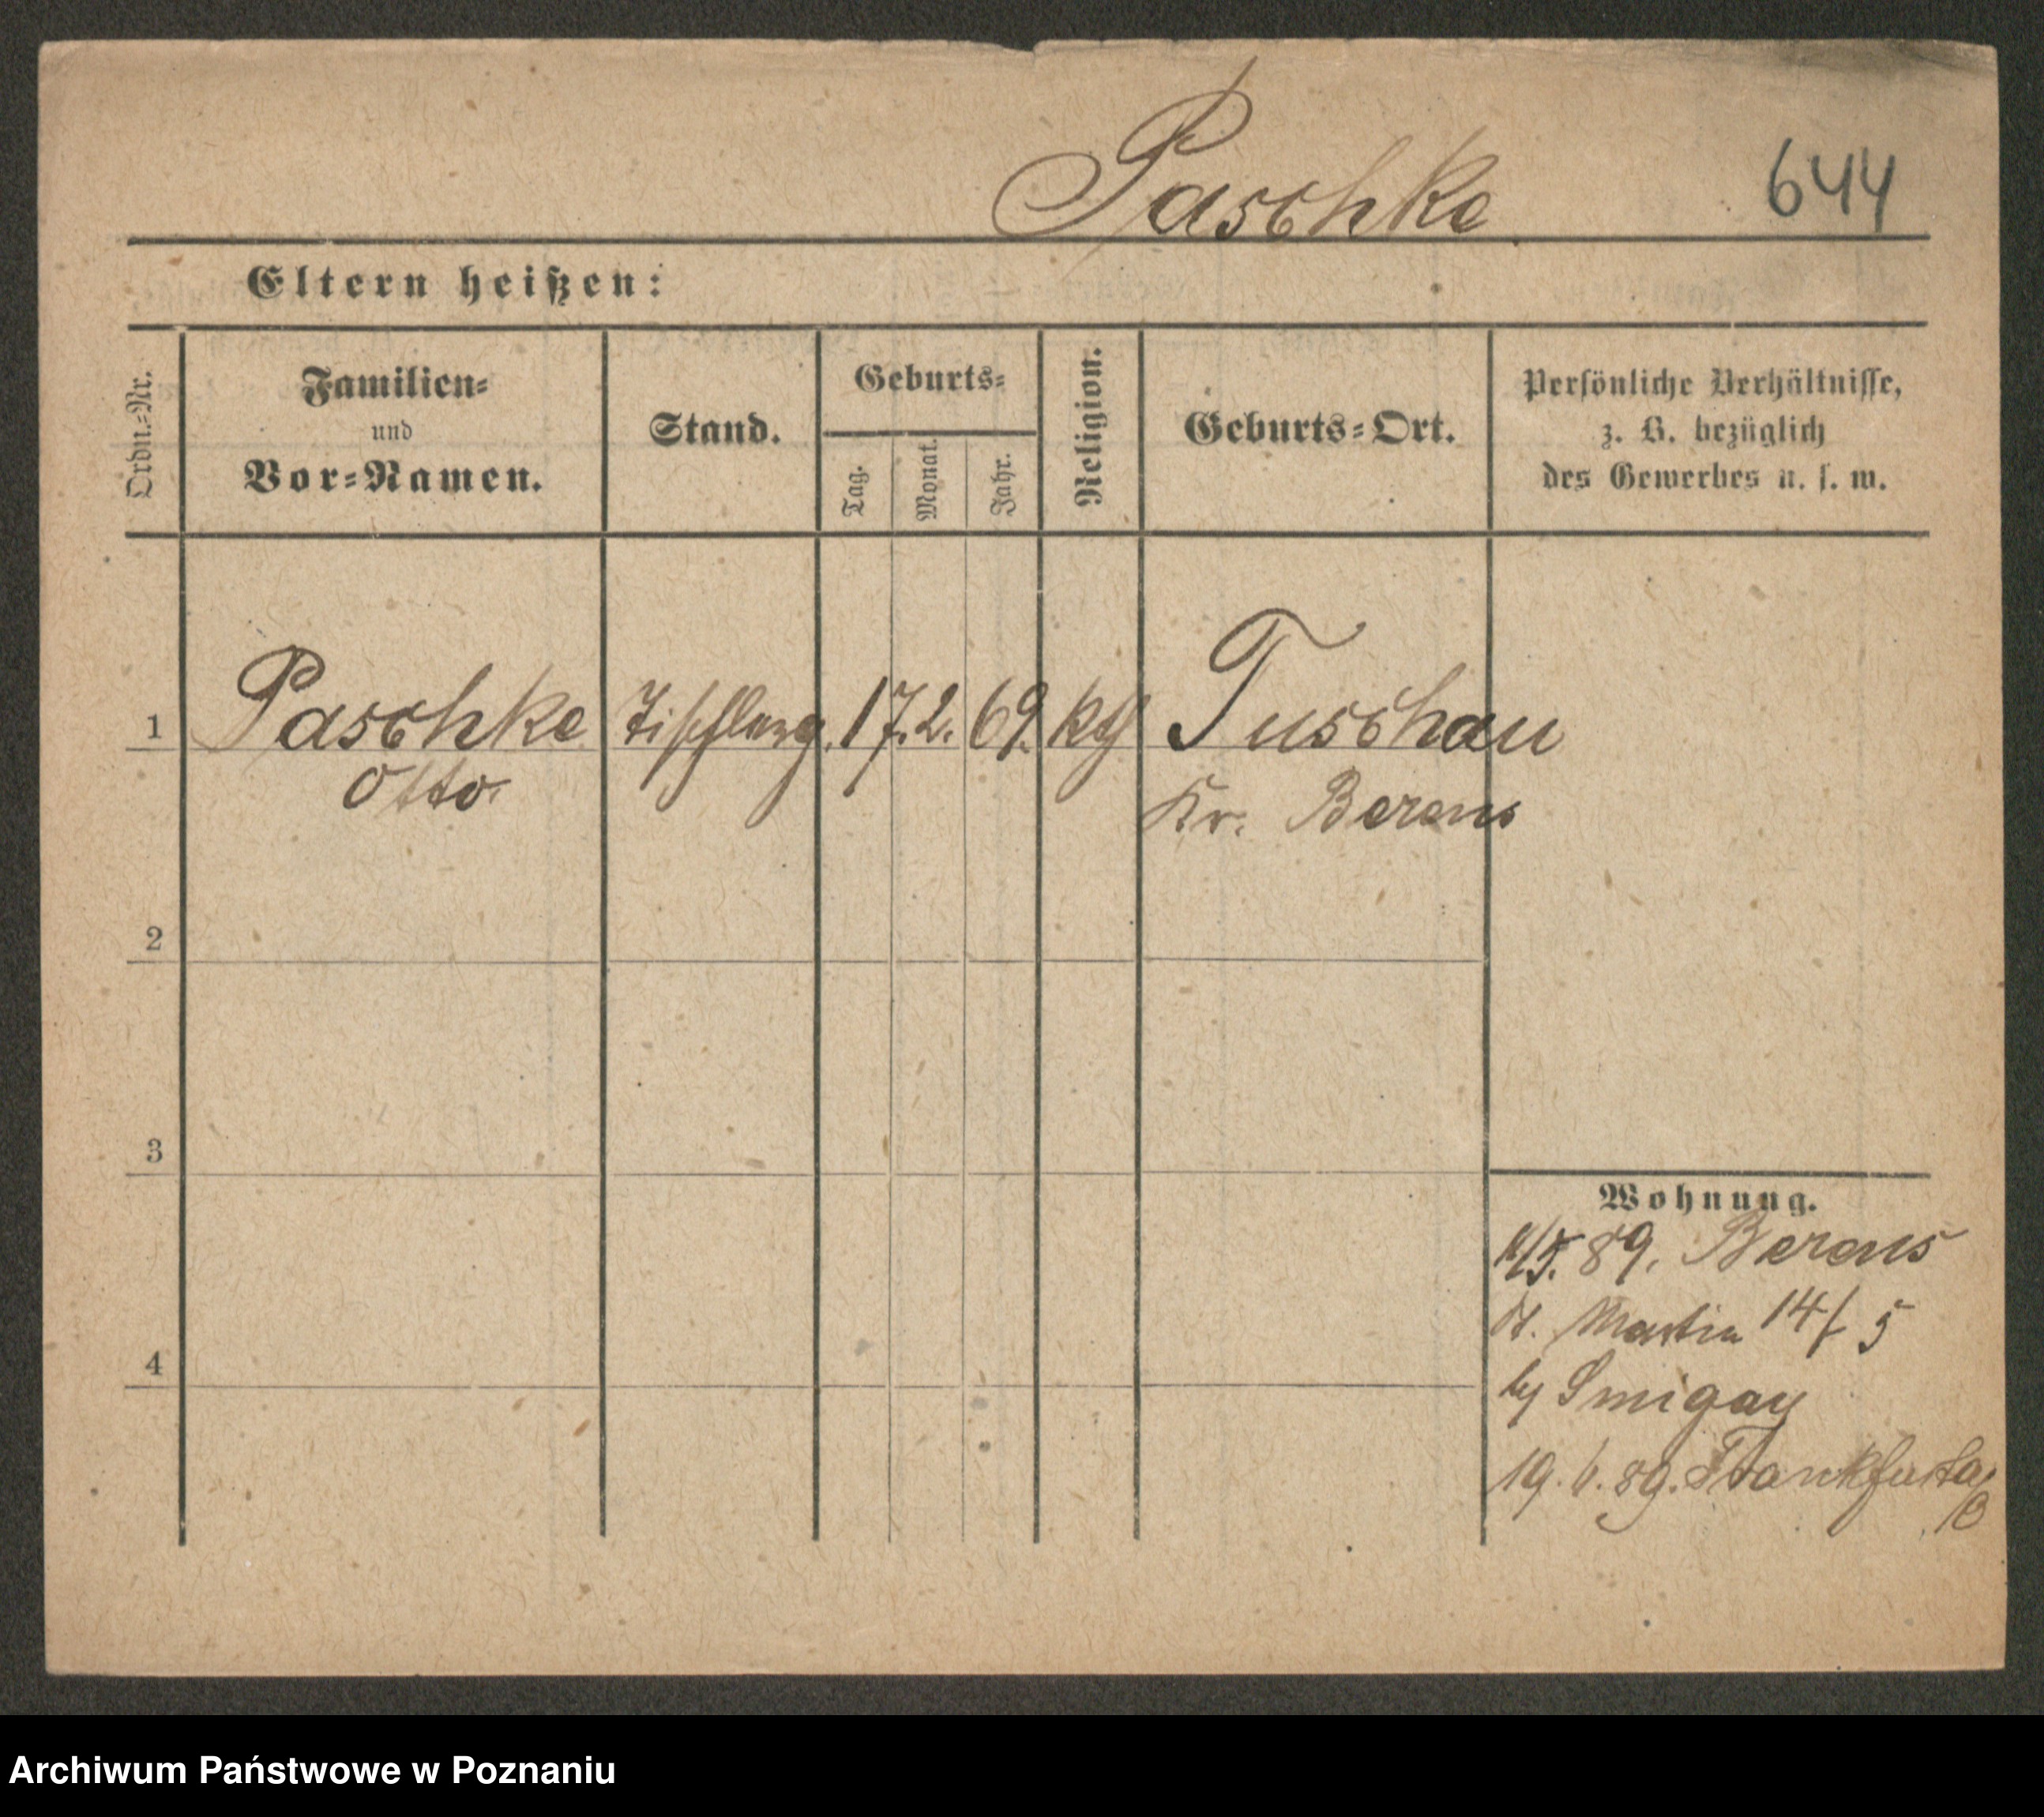 Paschke 644
Eltern heißen:
Ordn.-Nr.
Familien-
und
Vor-Namen.
Stand.
Geburts-
Tag.
Monat.
Jahr.
Religion.
Geburts-Ort.
Persönliche Verhältnisse,
z. B. bezüglich
des Gewerbes u. s. w.
1 Paschke Tischlerg. 17. 2. 69. kth Tuschau
Otto Kr. Berens
2
3
4
Wohnung.
89. Berens
St. Martin 14/5
by Smigay
19. 6. 89. Frankfurt a/
O
Archiwum Państwowe w Poznaniu